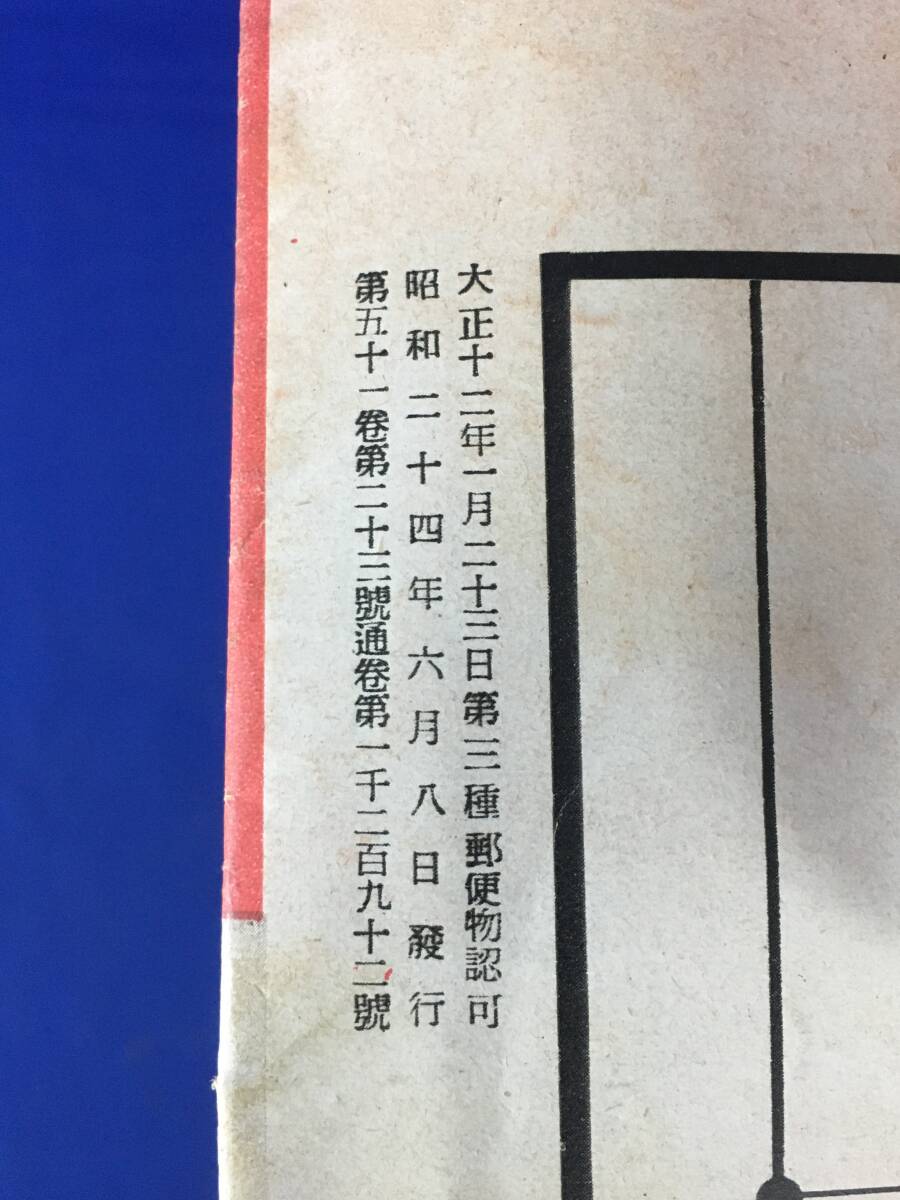 大正十二年一月二十三日第三種郵便物認可
昭和二十四年六月八日發行
第五十一卷第二十三號通卷第一千二百九十二號